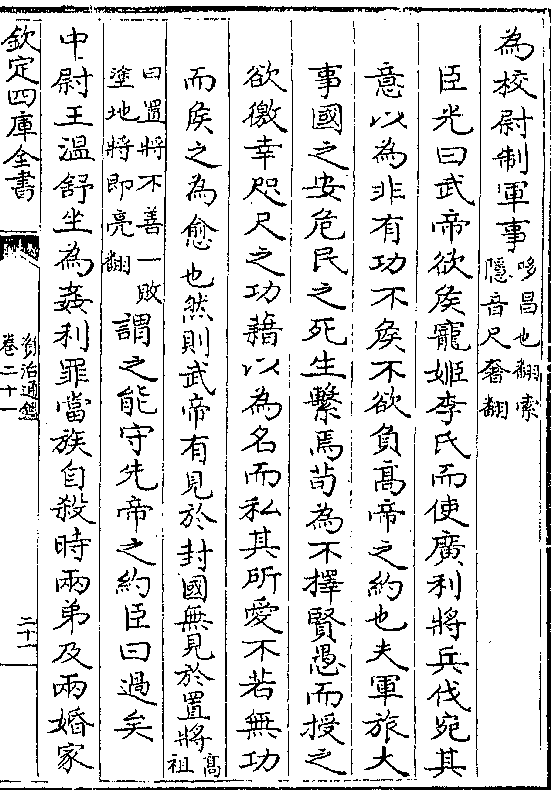 為校尉制軍事哆昌也翻索隱音尺奢翻
臣光曰武帝欲矦寵姬李氏而使廣利將兵伐宛其
意以為非有功不矦不欲負髙帝之約也夫軍旅大
事國之安危民之死生繫焉茍為不擇賢愚而授之
欲徼幸咫尺之功藉以為名而私其所愛不若無功
而矦之為愈也然則武帝有見於封國無見於置將髙祖
曰置將不善一敗塗地將即亮翻謂之能守先帝之約臣曰過矣
中尉王温舒坐為姦利罪當族自殺時兩弟及兩婚家
欽定四庫全書
資治通鑑
卷二十一
二十一